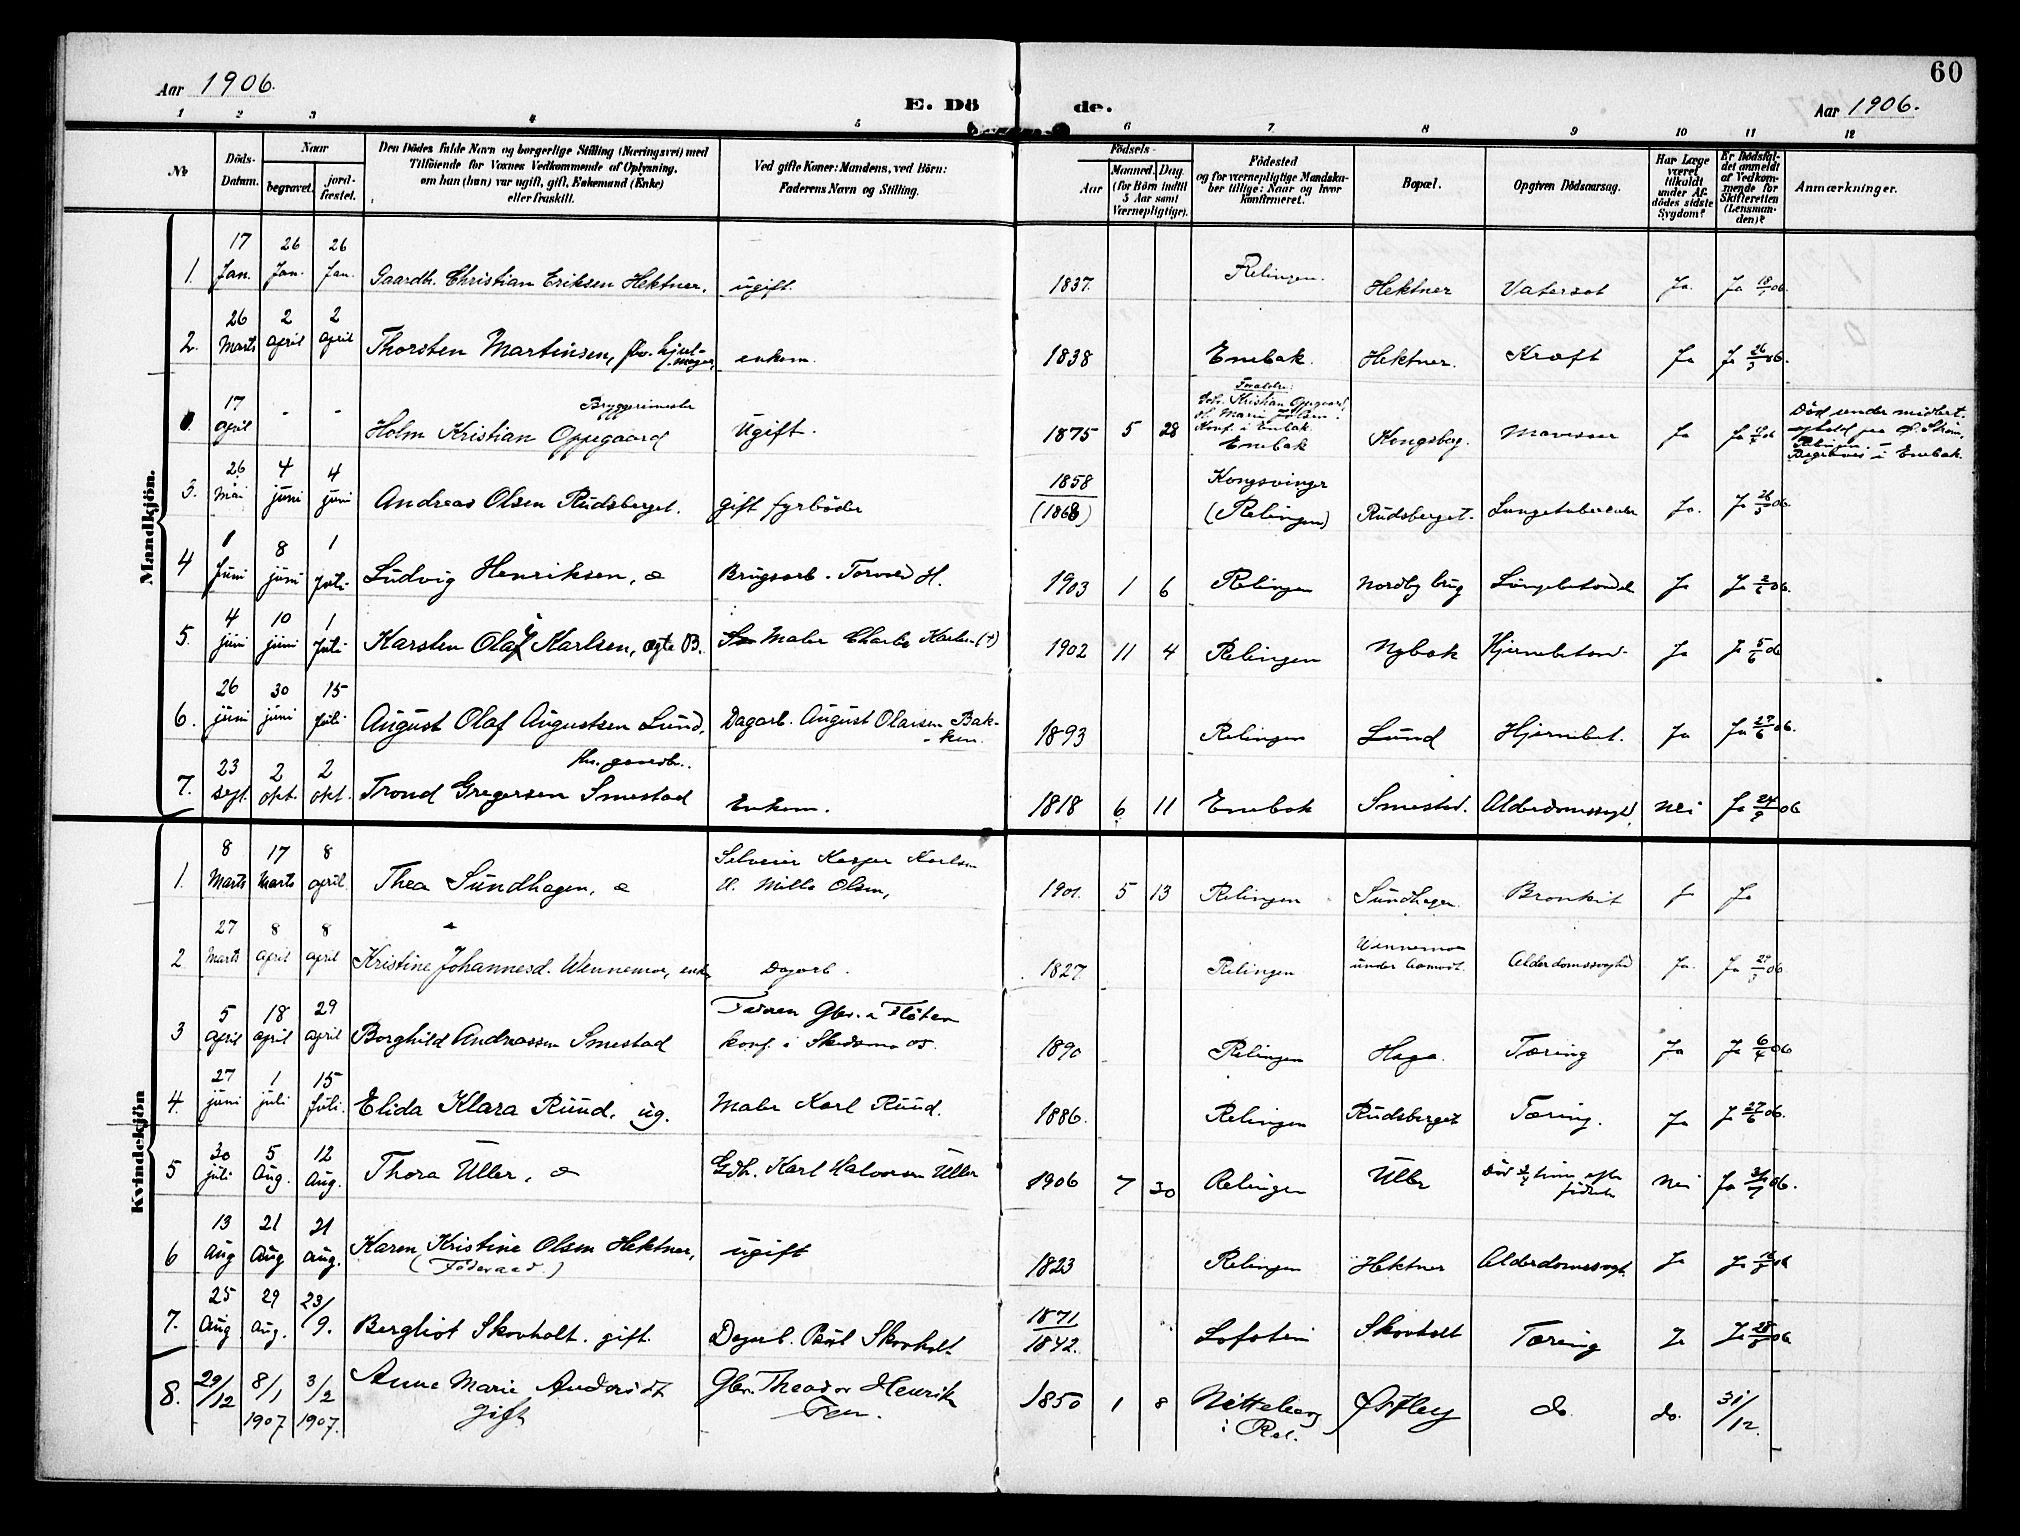 60
Aar 1906.
E. Döde.
Aar 1906.
1 2 3 4 5 6 7 8 9 10 11 12
No
Döds-Datum.
Naar
begravet.
jordfæstet.
Den Dödes fulde Navn og borgerlige Stilling (Næringsvei) med
Tilföiende for Voxnes Vedkommende af Oplysning,
om han (hun) var ugift, gift, Enkemand (Enke)
eller fraskilt.
Ved gifte Koner: Mandens, ved Börn:
Faderens Navn og Stilling.
Födsels-
Aar
Maaned. Dag
(for Börn indtil
5 Aar samt
Værnepligtige).
Födested
og for værnepligtige Mandska-
ber tillige: Naar og hvor
konfirmeret.
Bopæl.
Opgiven Dödsaarsag.
Har Læge
været
tilkaldt
under Af-
dödes sidste
Sygdom?
Er Dödsfal-
det anmeldt
af Vedkom-
mende for
Skifteretten
(Lensman-
den)?
Anmærkninger.
Mandkjön.
1. 17 Jan. 26 Jan. 26 Jan. Gaardb. Christian Eriksen Hektner. ugift. 1837. Relingen. Hektner Vatersot Ja. Ja 18/1 06.
2. 26 Marts 2 april 2 april Thorsten Martinsen, fhv. hjulmager, enkem. 1838 Enebak. Hektner. Kræft Ja Ja 26/3 06.
17 april - - Holm Kristian Oppegaard Bryggerimester Ugift. 1875 5 28 Forældre: Kristian Oppegaard Marie Konf. i Enebak. Enebak Kongsberg. Mavesaar Ja Ja 06 Död under midlert. ophold paa Ström, Relingen. Begraves i Enebak.
3. 26 Mai 4 juni 4 juni Andreas Olsen Rudsberget. gift fyrböder 1858 (1868) Kongsvinger (Relingen) Rudsberget. Lungetuberculos Ja. Ja 26/5 06.
4 1 Juni 8 juni 1 juli Ludvig Henriksen, æ Brugsarb. Torvald H. 1903 1 6 Relingen Nordby brug Lungebetændel Ja Ja 2/6 06.
5. 4 juni 10 juni 1 juli Karsten Olaf Karlsen, ægte B. Maler Charles Karlsen (+) 1902 11 4 Relingen Nybak Hjernebetænd. Ja Ja 5/6 06
6. 26 juni 30 juni 15 juli August Olaf Augustsen Lund, Dagarb. August Olausen Bakken. 1893 Relingen Lund Hjernebet. Ja Ja 27/6 06.
7. 23 sept. 2 okt. 2 okt. Trond Gregersen Smestad fhv. gaardbr. Enkem. 1818 6 11 Enebak Smestad. Alderdomssvagh. Nei Ja 24/9 06
Kvindekjön
1. 8 Marts 17 Marts 8 april. Thea Sundhagen, æ Selveier Kasper Karlsen u. Mille Olsen, 1901. 5 13 Relingen Sundhagen. Bronkit J Ja
2 27 Marts 8 april 8 april Kristine Johannesd. Wennemoe, enke Dagarb. 1827 Relingen Wennemoe under Aamodt. Alderdomssvaghed Ja. Ja 29/3 06.
3 5 april 18 april 29 april Borghild Andreassen Smestad Faderen Gbr. i Flöten konf. i Skedsmo os. 1890 Relingen Haga. Tæring Ja Ja 6/4 06
4. 27 juni 1 juli 15 juli. Elida Klara Ruud. ug. Maler Karl Ruud. 1886. Relingen Rudsberget Tæring. Ja Ja 27/6 06.
5 30 juli 5 Aug. 12 Aug. Thora Uller, æ Gdb. Karl Halvorsen Uller 1906 7 30 Relingen Uller Död time efter födsel Nei Ja 31/7 06.
6 13 Aug 21 Aug 21 Aug. Karen Kristine Olsen Hektner, (Föderaad.) ugift 1823 Relingen Hektner Alderdomssvagh. Ja Ja 06
7. 25 Aug 29 Aug. 23/9. Bergliot Skovholt. gift. Dagarb. Paul Skovholt 1871 1842. Lofoten Skovholt Tæring Ja Ja 28/8 06
8. 29/12 8/1 1907 3/2 1907. Anne Marie Andersdt gift Gbr. Theodor Henrik 1850 1 8 Nitteberg i Rel. Östby do. do. 31/12.